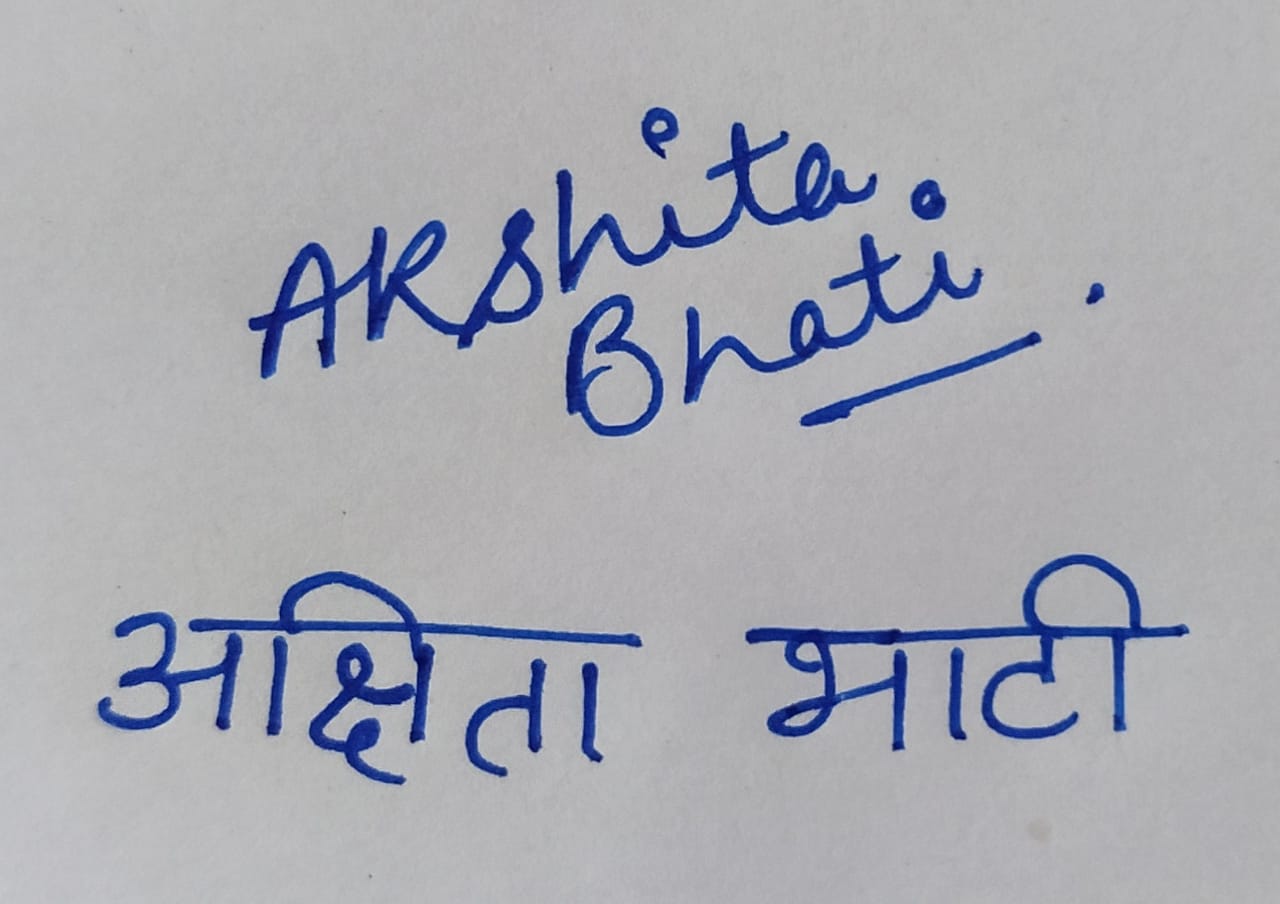 AKshita
Bhati.
अक्षिता भाटी